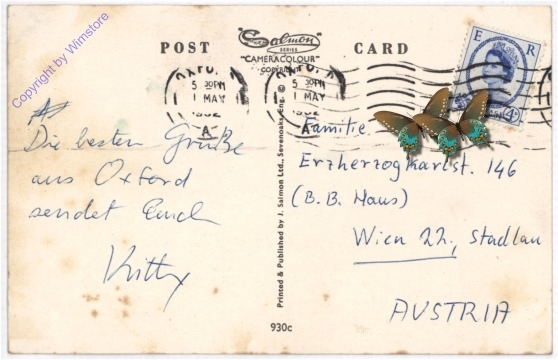 Copyright by Wimstore
POST CARD
Salmon
SERIES
"CAMERACOLOUR"
COPYRIGHT
E R
4D
OXFORD
5 30PM
1 MAY
1962
A
5 30PM
1 MAY
1962
A
Die besten Grüße
aus Oxford
sendet Euch
Kitty
Printed & Published by J. Salmon Ltd., Sevenoaks, Eng. ©
930c
Familie
Erzherzogkarlst. 146
(B.B. Haus)
Wien 22., Stadlau
AUSTRIA